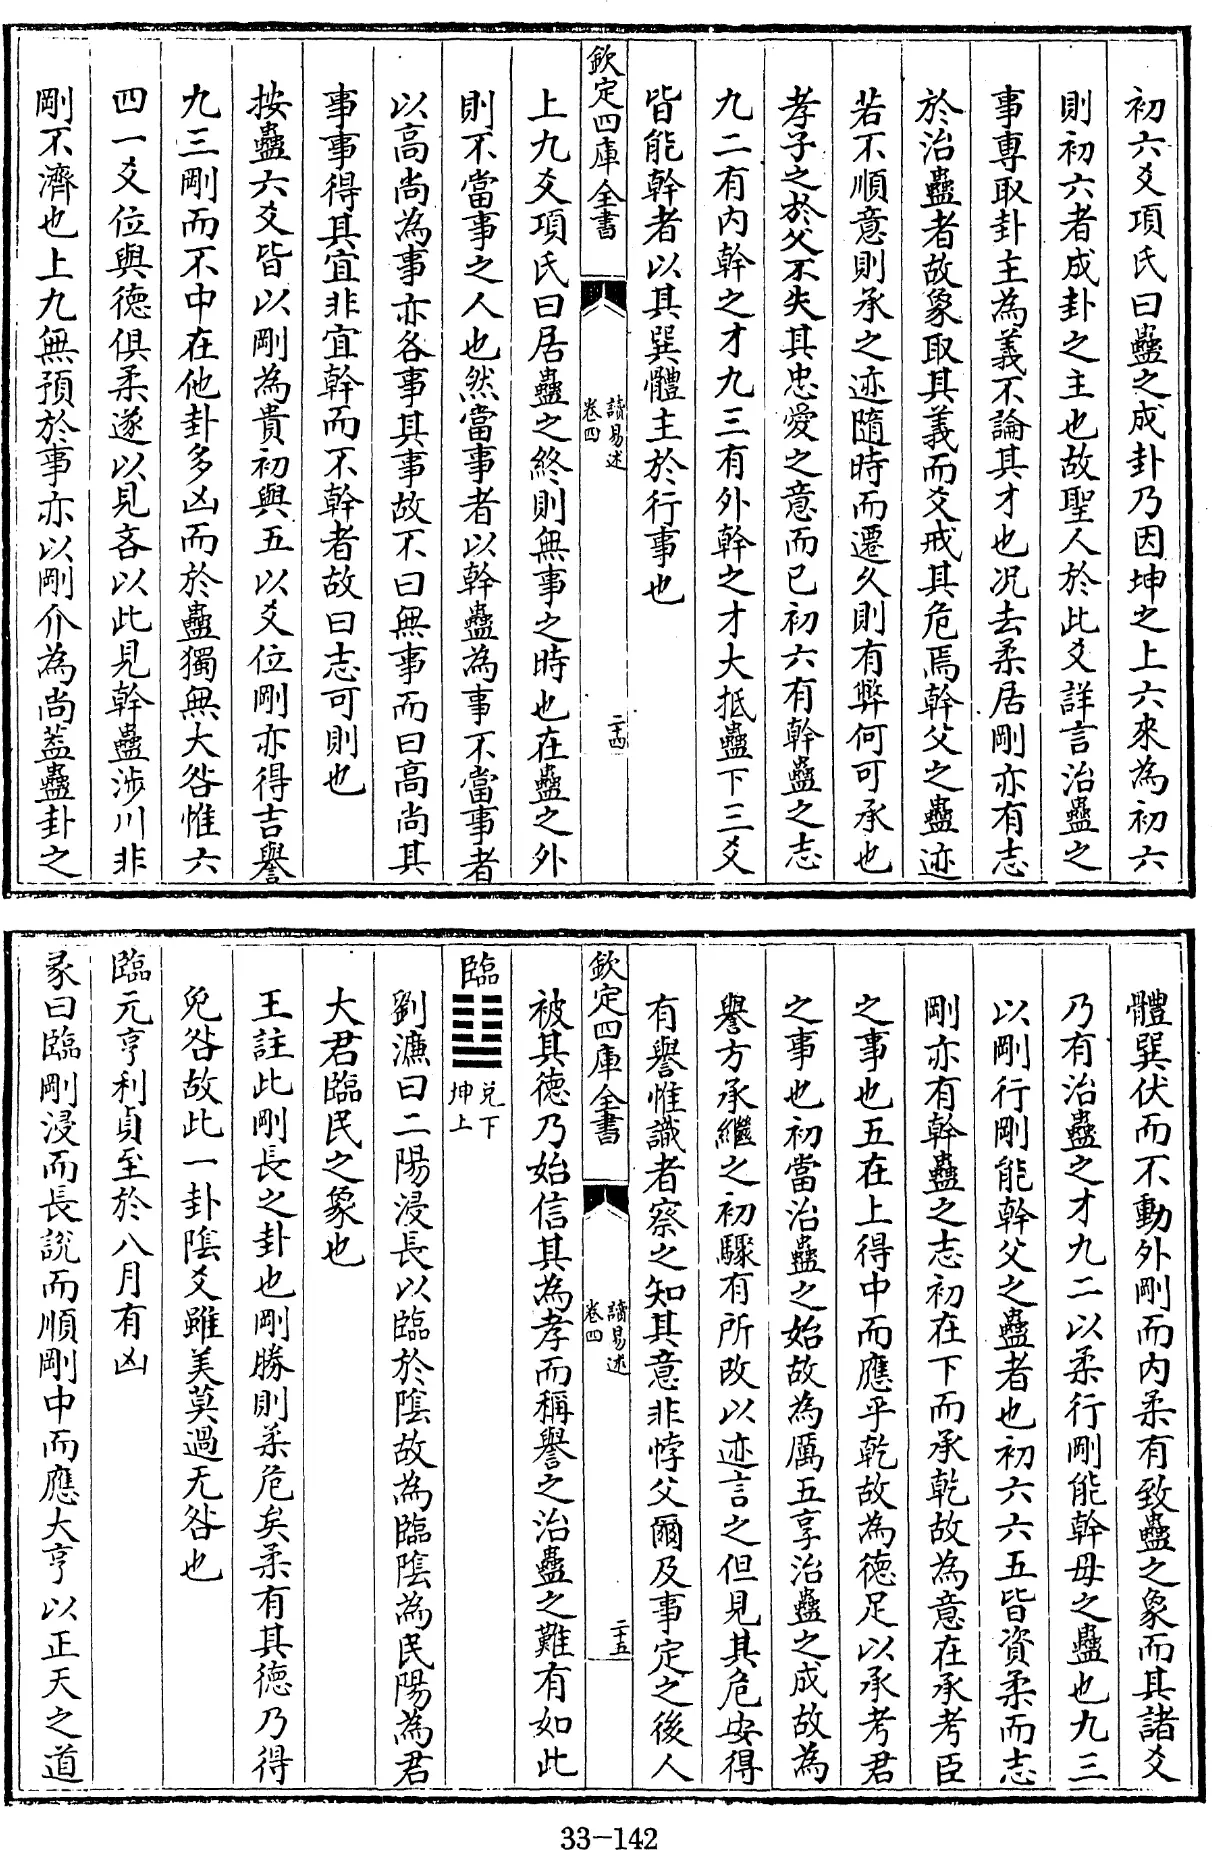 初六爻項氏曰蠱之成卦乃因坤之上六來為初六
則初六者成卦之主也故聖人於此爻詳言治蠱之
事專取卦主為義不論其才也况去柔居剛亦有志
於治蠱者故象取其義而爻戒其危焉幹父之蠱迹
若不順意則承之迹隨時而遷久則有弊何可承也
孝子之於父不失其忠愛之意而已初六有幹蠱之志
九二有内幹之才九三有外幹之才大抵蠱下三爻
皆能幹者以其巽體主於行事也
欽定四庫全書
讀易述
卷四
二十四
上九爻項氏曰居蠱之終則無事之時也在蠱之外
則不當事之人也然當事者以幹蠱為事不當事者
以高尚為事亦各事其事故不曰無事而曰高尚其
事事得其宜非宜幹而不幹者故曰志可則也
按蠱六爻皆以剛為貴初與五以爻位剛亦得吉譽
九三剛而不中在他卦多凶而於蠱獨無大咎惟六
四一爻位與德俱柔遂以見吝以此見幹蠱涉川非
剛不濟也上九無預於事亦以剛介為尚葢蠱卦之
體巽伏而不動外剛而内柔有致蠱之象而其諸爻
乃有治蠱之才九二以柔行剛能幹母之蠱也九三
以剛行剛能幹父之蠱者也初六六五皆資柔而志
剛亦有幹蠱之志初在下而承乾故為意在承考臣
之事也五在上得中而應乎乾故為德足以承考君
之事也初當治蠱之始故為厲五享治蠱之成故為
譽方承繼之初驟有所改以迹言之但見其危安得
有譽惟識者察之知其意非悖父爾及事定之後人
欽定四庫全書
讀易述
卷四
二十五
被其德乃始信其為孝而稱譽之治蠱之難有如此
臨 兌下
坤上
劉濂曰二陽浸長以臨於陰故為臨陰為民陽為君
大君臨民之象也
王註此剛長之卦也剛勝則柔危矣柔有其德乃得
免咎故此一卦陰爻雖美莫過无咎也
臨元亨利貞至於八月有凶
彖曰臨剛浸而長說而順剛中而應大亨以正天之道
33-142